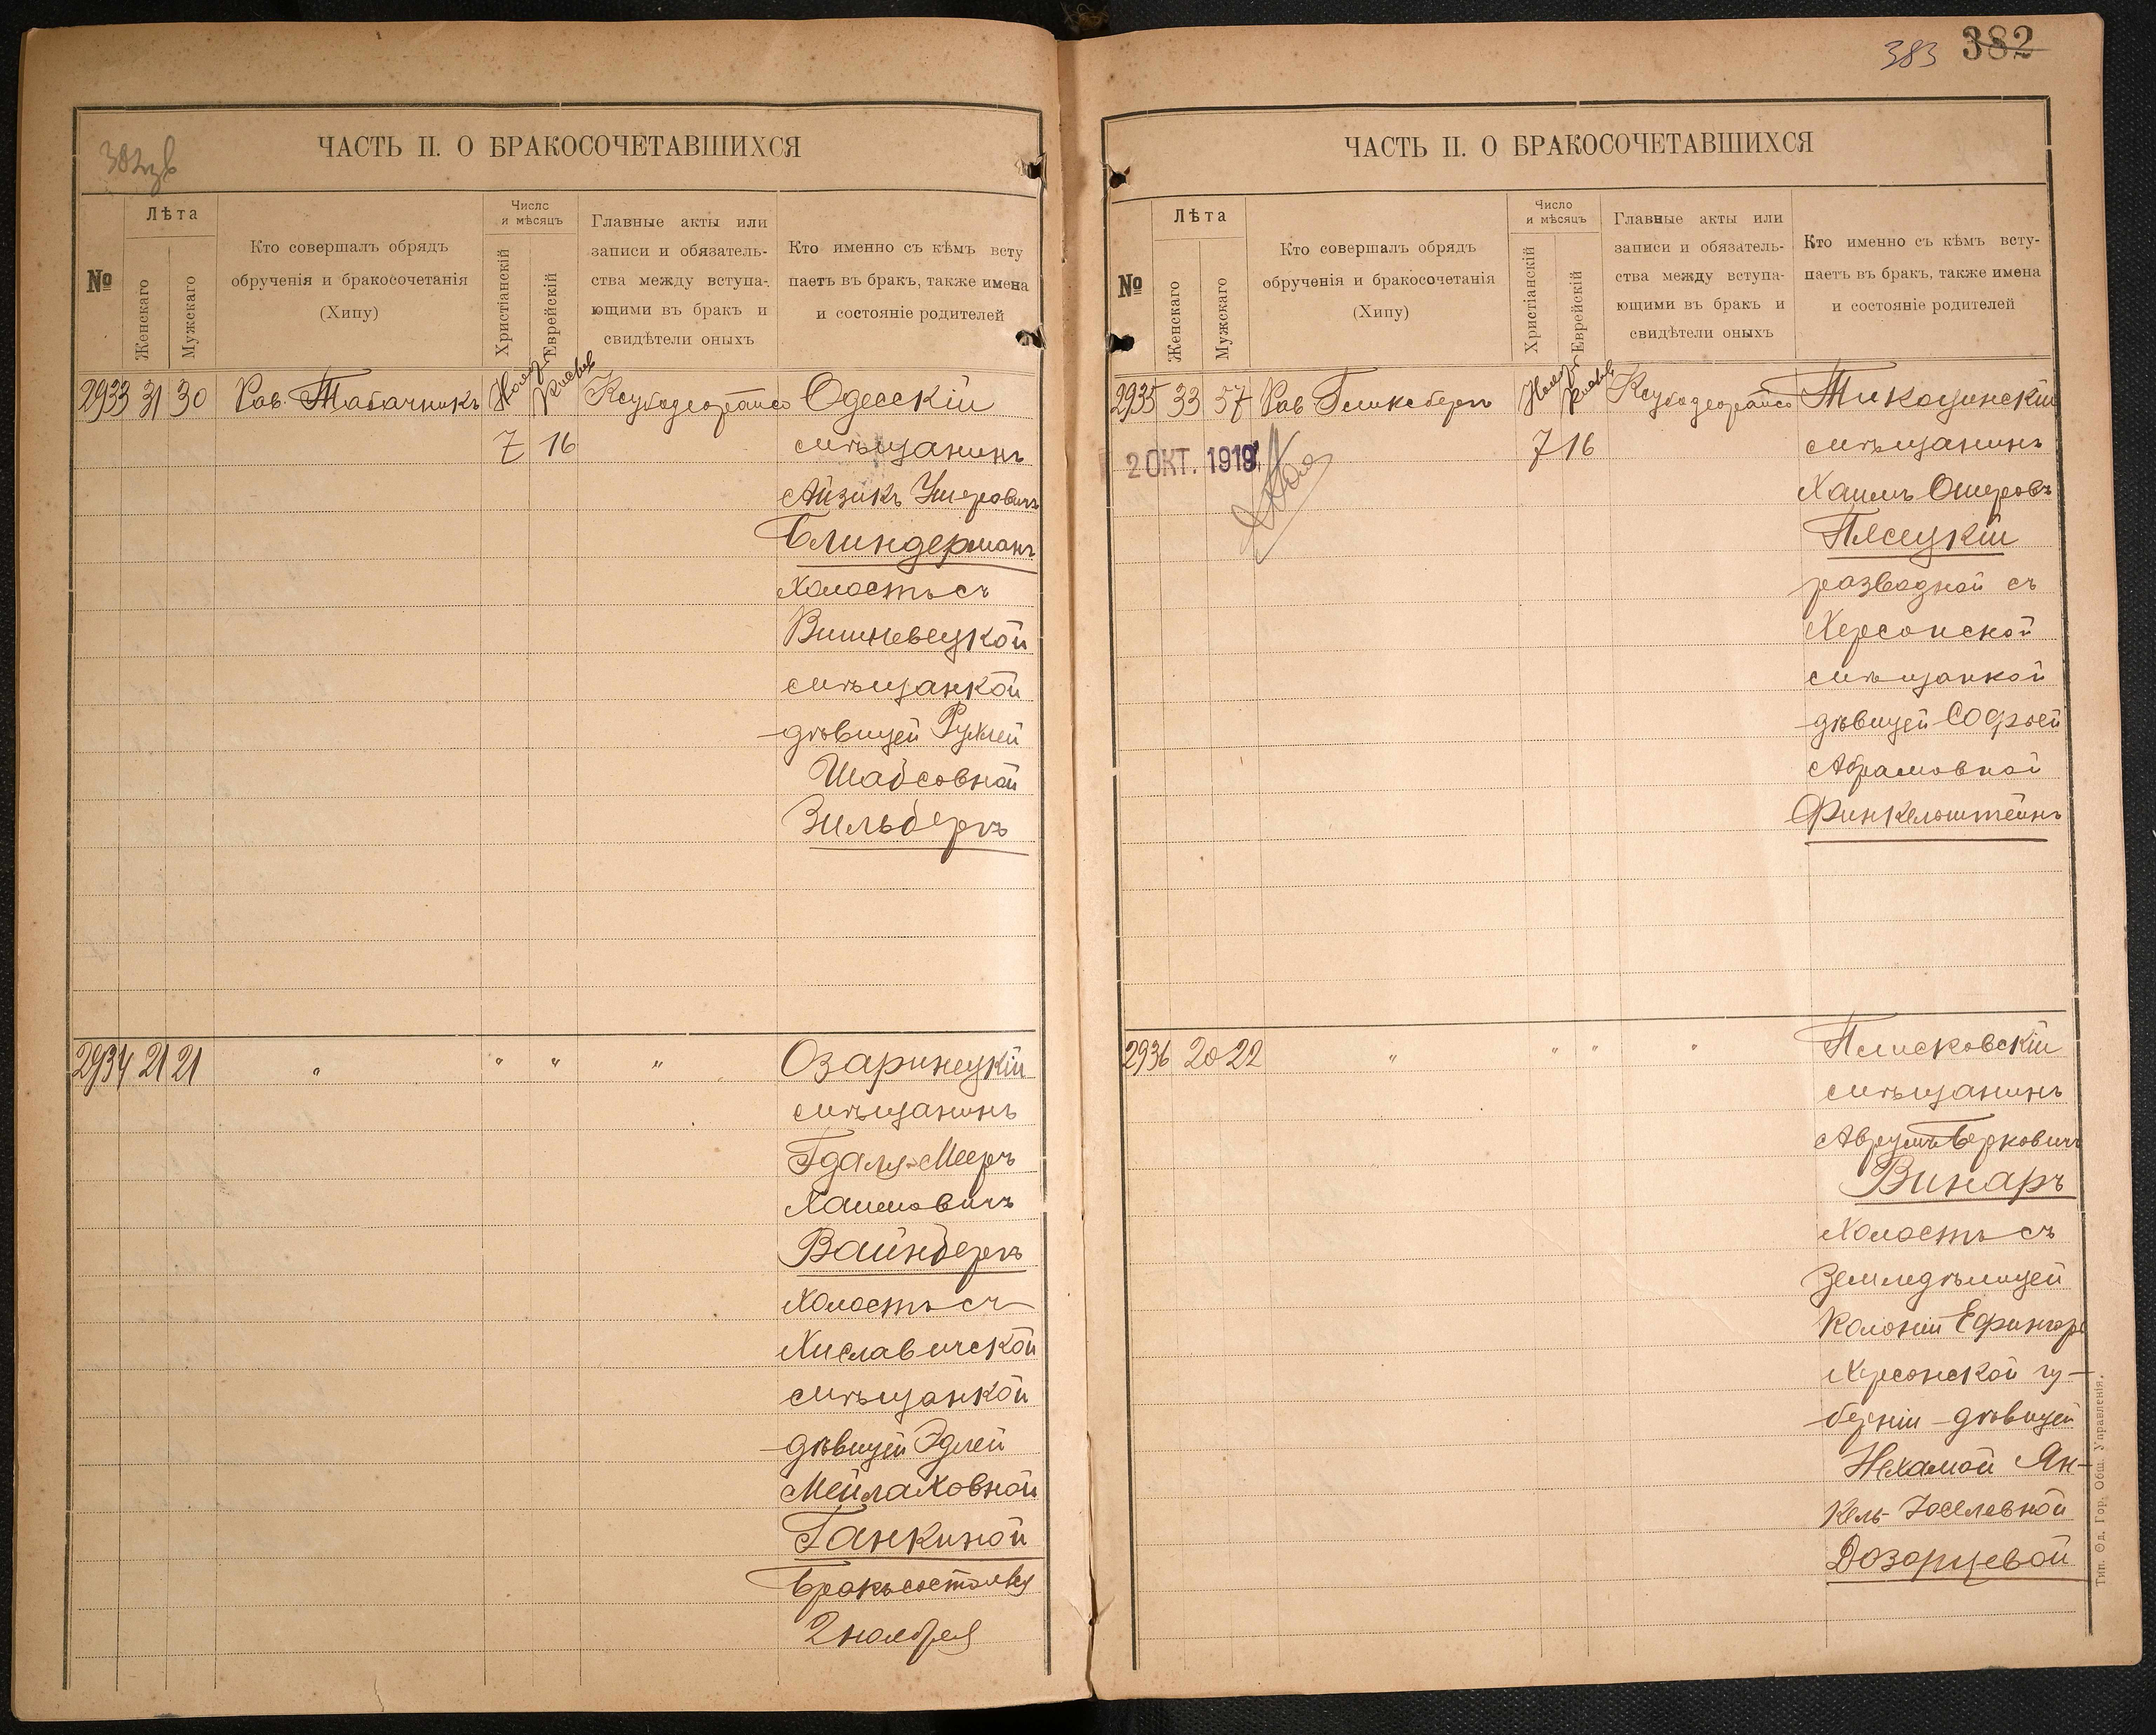 382 зв
ЧАСТЬ II. О БРАКОСОЧЕТАВШИХСЯ
№
Лѣта
Женскаго
Мужскаго
Кто совершалъ обрядъ
обрученія и бракосочетанія
(Хипу)
Число
и мѣсяцъ
Христіанскій
Еврейскій
Главные акты или
записи и обязатель-
ства между вступа-
ющими въ бракъ и
свидѣтели оныхъ
Кто именно съ кѣмъ всту
паетъ въ бракъ, также имена
и состояніе родителей
2933 31 30 Рав. Табачникъ Нояб. Кислев Одесскій
7 16 мѣщанинъ
Айзикъ Ушеровичъ
Блиндерманъ
холостъ съ
Вишневецкой
мѣщанкой
дѣвицей Рухлей
Шабсовной
Зильберъ
2934 21 21 " " " " Озаринецкій
мѣщанинъ
Гдаля-Мееръ
Хаимовичъ
Вайнберъ
холостъ съ
Хиславичской
мѣщанкой
дѣвицей Эдлей
Мейлаховной
Ганкиной
Бракъ состоялся
2 ноября
383 382
ЧАСТЬ II. О БРАКОСОЧЕТАВШИХСЯ
№
Лѣта
Женскаго
Мужскаго
Кто совершалъ обрядъ
обрученія и бракосочетанія
(Хипу)
Число
и мѣсяцъ
Христіанскій
Еврейскій
Главные акты или
записи и обязатель-
ства между вступа-
ющими въ бракъ и
свидѣтели оныхъ
Кто именно съ кѣмъ всту-
паетъ въ бракъ, также имена
и состояніе родителей
2935 33 57 Рав Гликсбергъ Нояб. Кислев Тикоцинскій
2 ОКТ. 1919 7 16 мѣщанинъ
Хаимъ Ошеровъ
Пясецкій
разводной съ
Херсонской
мѣщанкой
дѣвицей Софьей
Абрамовной
Финкельштейнъ
2936 20 22 " " " " Плисковскій
мѣщанинъ
Аврумъ Берковичъ
Винаръ
холостъ съ
земледѣлицей
колоніи Ефингаръ
Херсонской гу-
берніи дѣвицей
Нехамой Ян-
кель-Іоселевной
Дозорцевой
Тип. Од. Гор. Общ. Управленія.